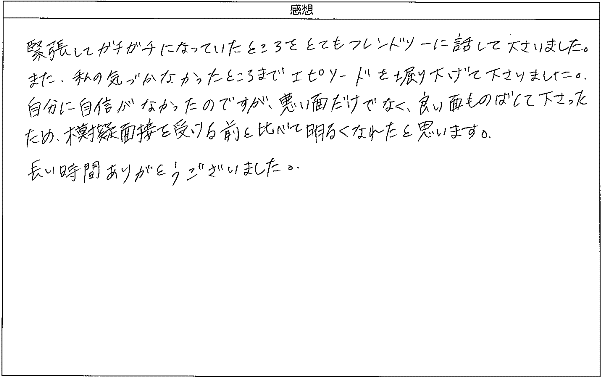 感想
緊張してガチガチになっていたところをとてもフレンドリーに話して下さいました。
また、私の気づかなかったところまでエピソードを掘り下げて下さいました。
自分に自信がなかったのですが、悪い面だけでなく、良い面ものばして下さった
ため、模擬面接を受ける前と比べて明るくなれたと思います。
長い時間ありがとうございました。